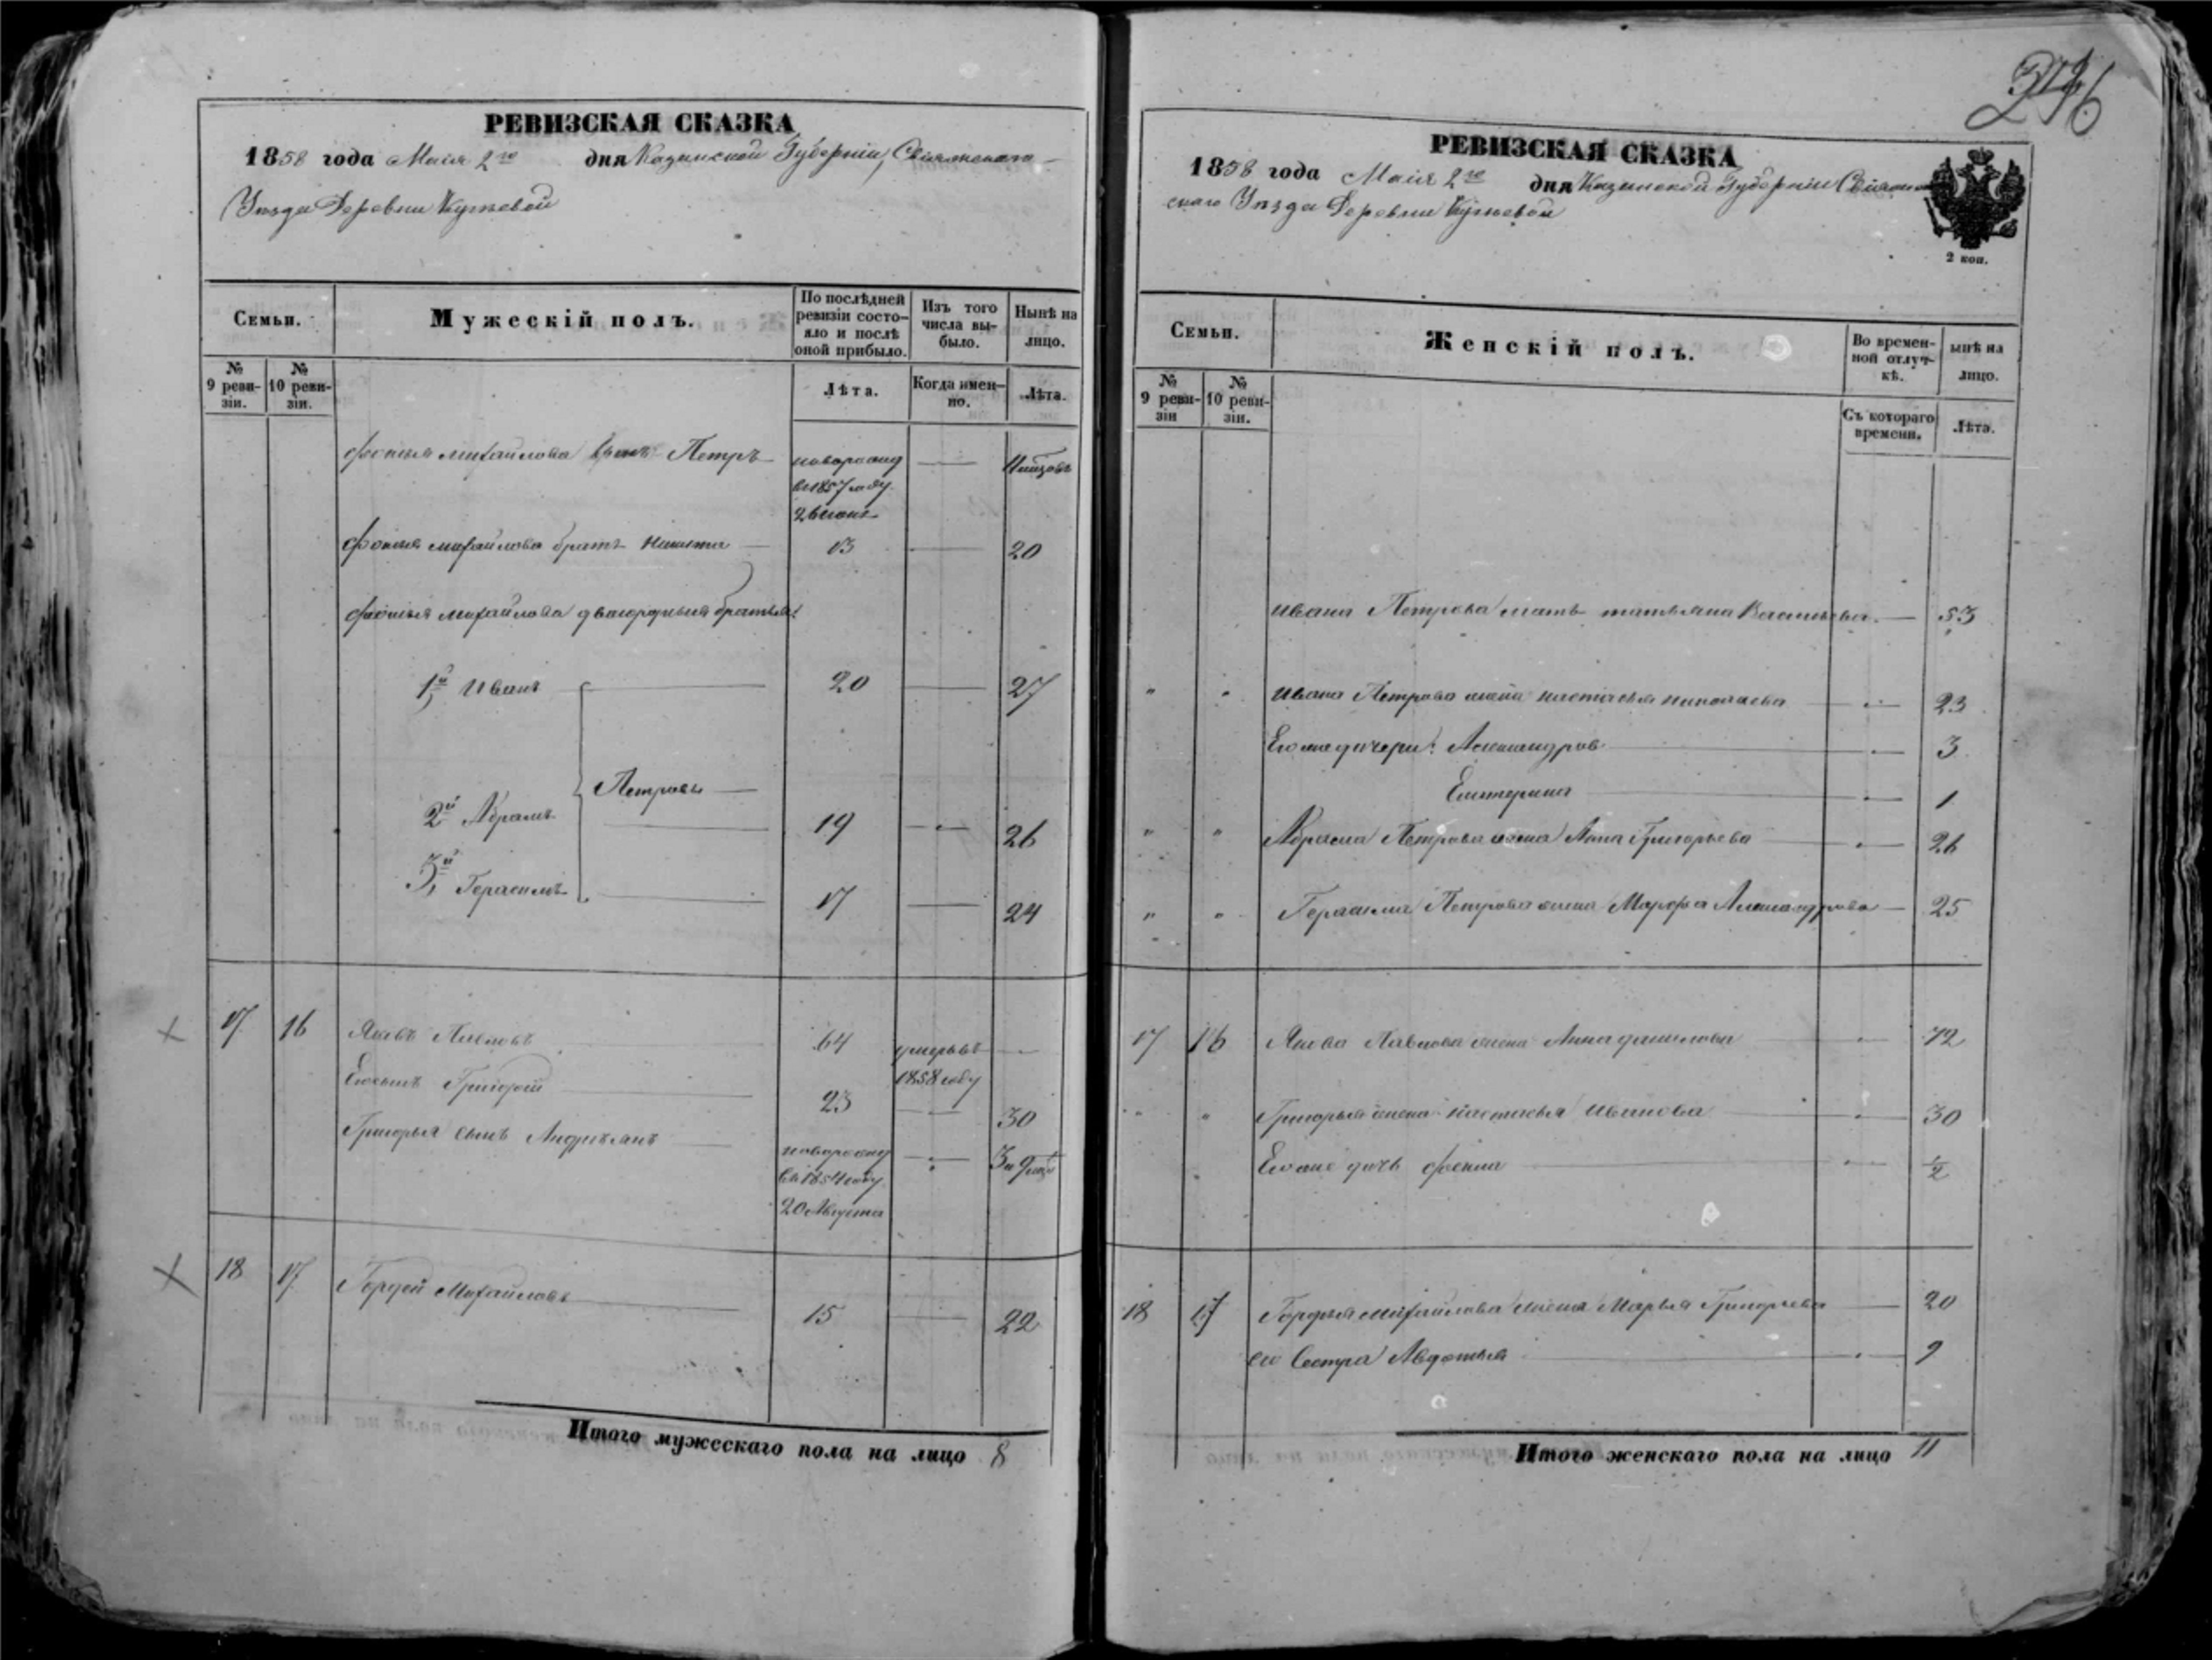 РЕВИЗСКАЯ СКАЗКА
1858 года Маія 2го дня Казанской Губерніи, Свіяжскаго
Уѣзда Деревни
Семьи.
Мужескій полъ.
По послѣдней ревизіи состо-
яло и послѣ оной прибыло.
Изъ того числа вы-
было.
Нынѣ на лицо.
№ 9 реви-
зіи.
№ 10 реви-
зіи.
Лѣта.
Когда имен-
но.
Лѣта.
Михайлова сынъ Петръ новорожд
в 1857 году
26 —
Михайлова братъ Никита — 13 — 20
Михайлова двоюродныя братья:
1й Иванъ — 20 — 27
Петровы —
2й Абрамъ — 19 — 26
3й Герасимъ — 17 — 24
17 16 Яковъ Павловъ 64 умеръ въ —
1858 году
Его сынъ Григорій — 23 — 30
Григорья сынъ Андреянъ — новорожд — 3 и 9
в 1854 году
20 Августа
18 17 Гордей Михайловъ — 15 — 22
Итого мужескаго пола на лицо 8
РЕВИЗСКАЯ СКАЗКА
1858 года Маія 2го дня Казанской Губерніи Свіяж
скаго Уѣзда Деревни
2 коп.
Семьи.
Женскій полъ.
Во времен-
ной отлуч-
кѣ.
ынѣ на лицо.
№ 9 реви-
зіи
№ 10 реви-
зіи.
Съ котораго времени.
Лѣта.
Ивана Петрова мать татьяна Васильева — 53
" " Ивана Петрова жена настасья николаева — 23
Его же дочери: Александров — 3
Екатерина — 1
" " Абрама Петрова жена Анна Григорьева — 26
" " Герасима Петрова жена Марфа Александрова — 25
17 16 Якова Павлова жена Анна данилова — 72
" " Григорья жена настасья Иванова — 30
" Его же дочь — ½
18 17 Гордея михайлова жена Марья Григорьева — 20
его Сестра Авдотья — 9
Итого женскаго пола на лицо 11